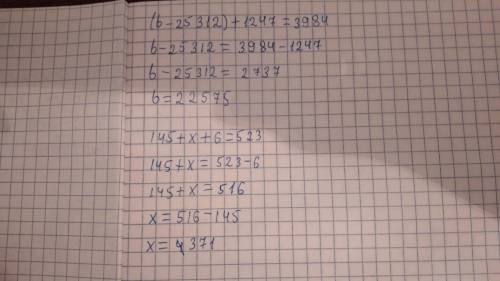 (b-25312)+1247=3984
b-25312=3984-1247
b-25312=2737
b=22575
145+x+6=523
145+x=523-6
145+x=516
x=516-145
x=371